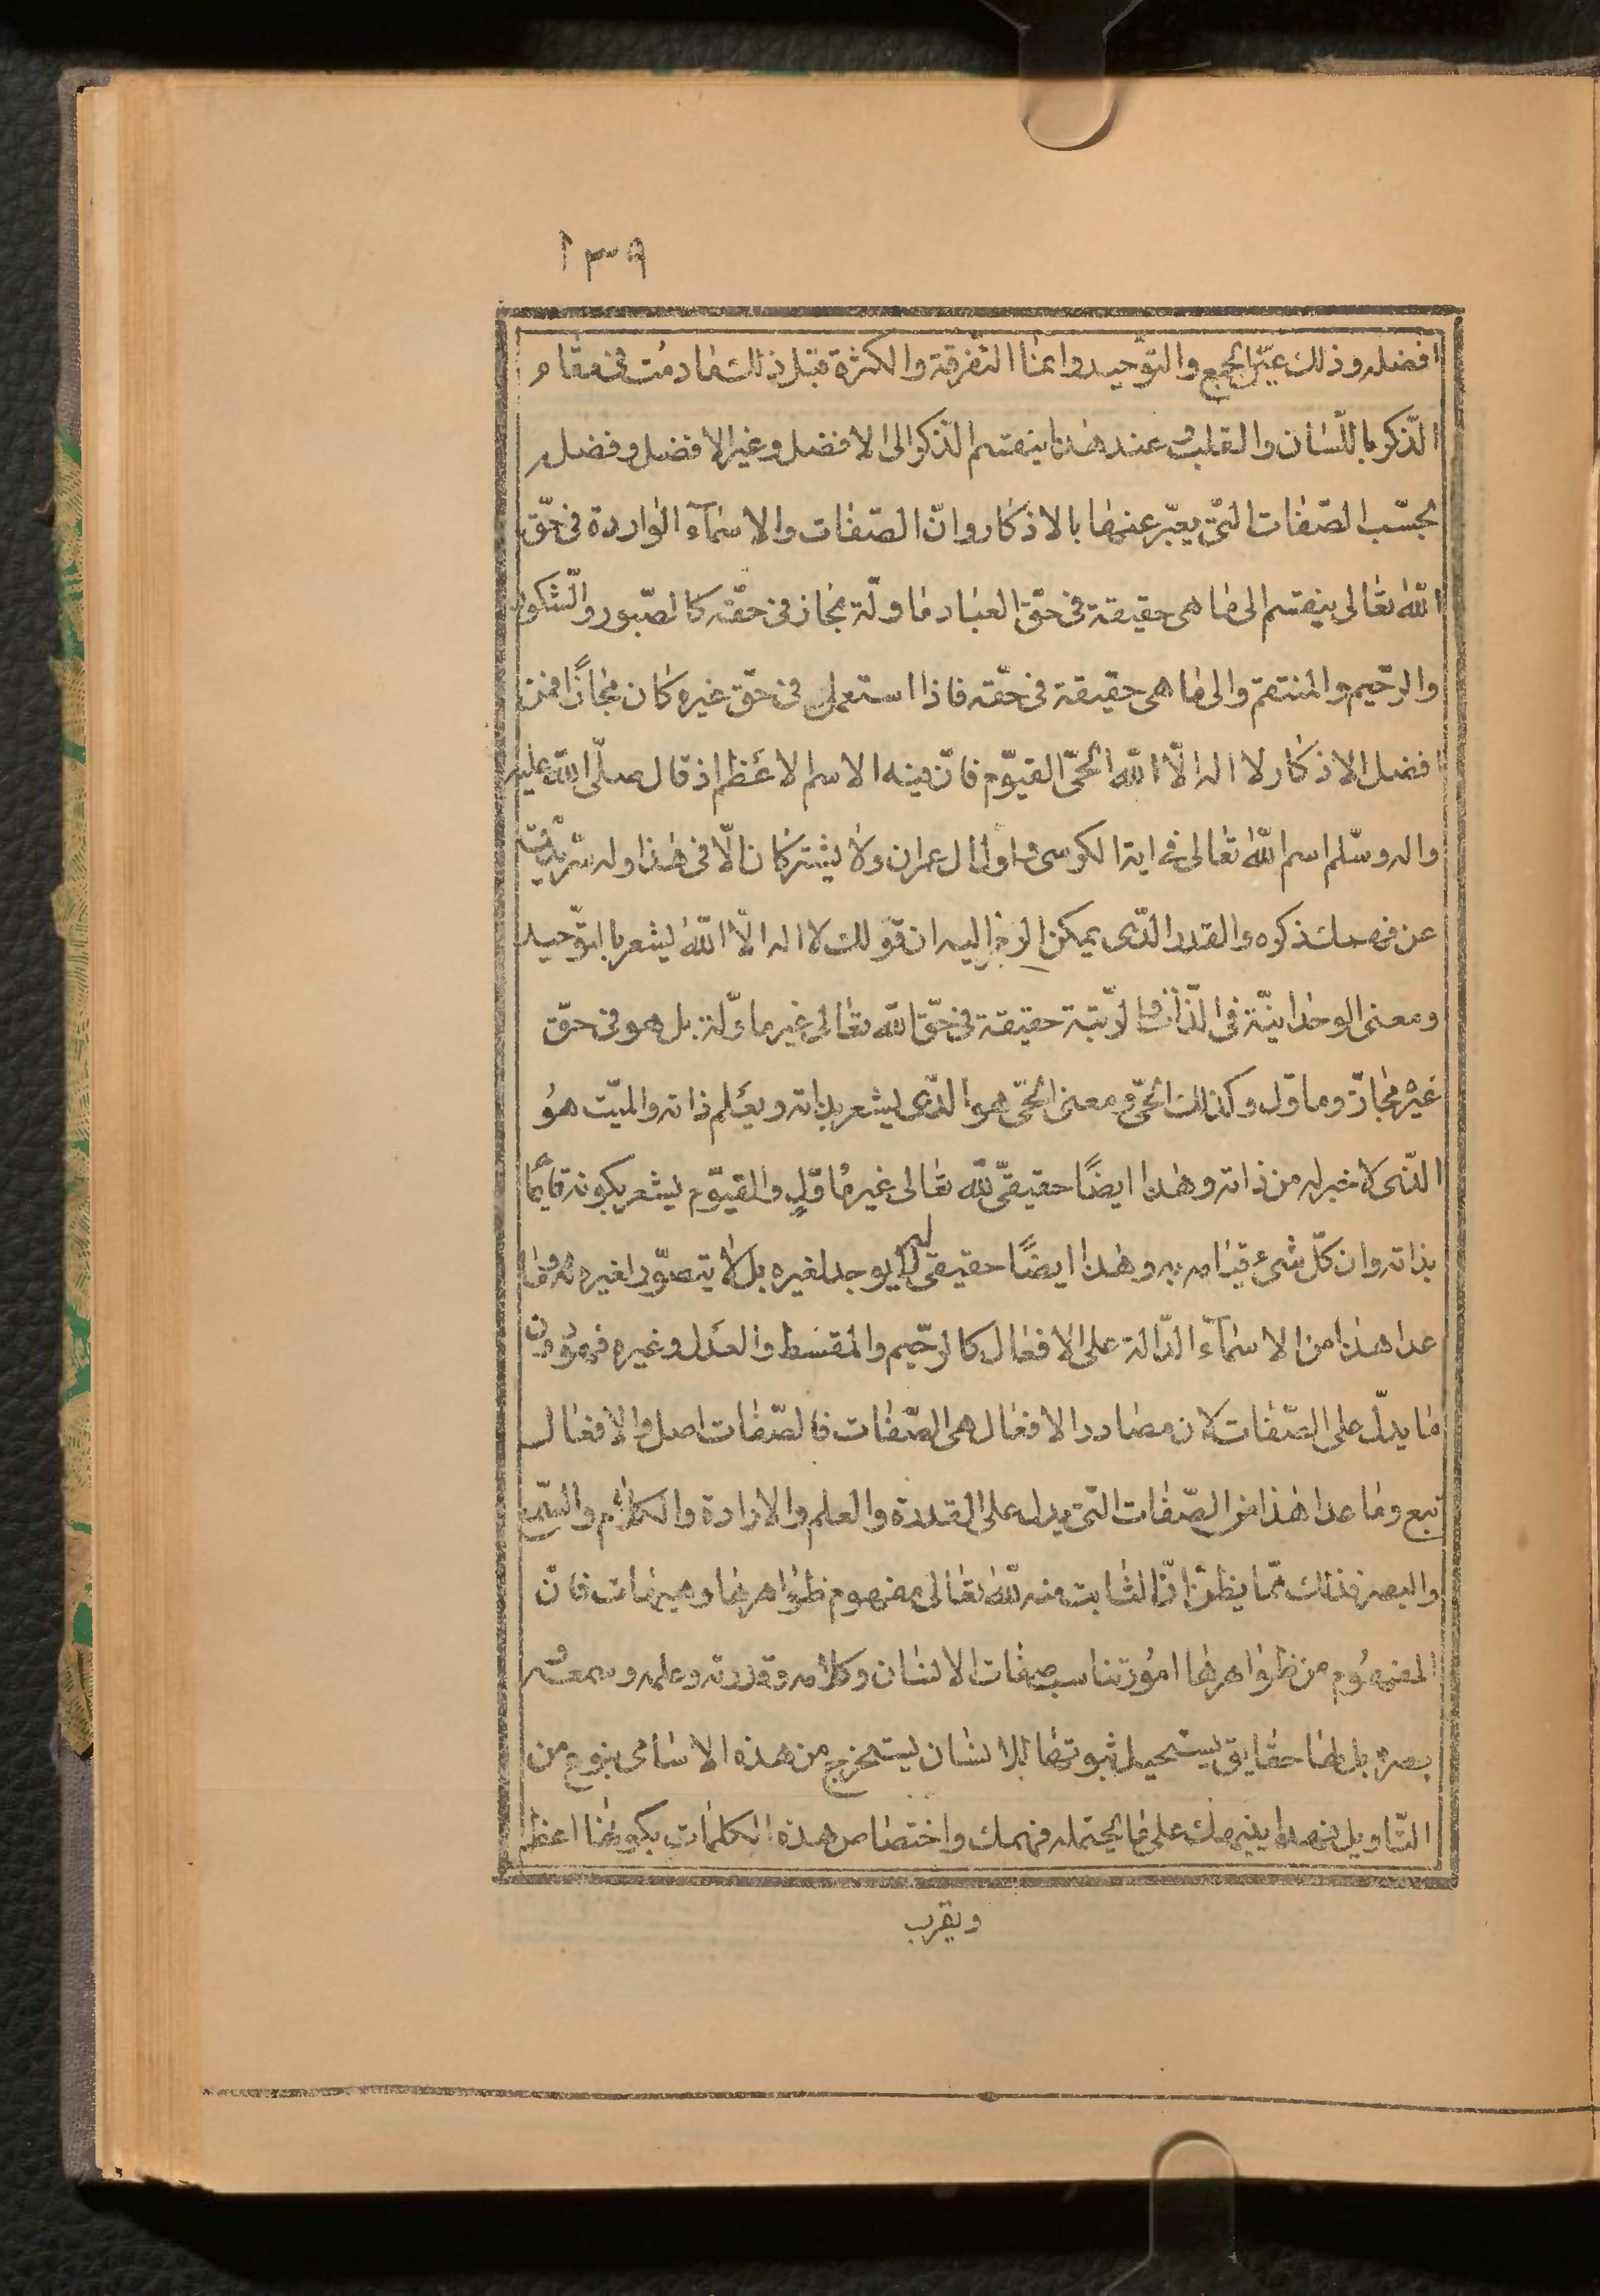 ١٣٩
افضله وذلك عين الجمع والتّوحيد وامّا التّفرقة والكثرة فقبل ذلك مادمت فى مقام
الذّكر باللّسان والقلب وعند هذا ينقسم الذّكر الى الافضل وغير الافضل وفضله
بحسب الصّفات الّتى يعبّر عنها بالاذكار وانّ الصّفات والاسمآء الواردة فى حقّ
اللّه تعالى ينقسم الى ما هى حقيقة فى حقّ العباد ماوّلة مجاز فى حقّه كالصّبور والشّكور
والرّحيم والمنتقم والى ما هى حقيقة فى حقّه فاذا استعمل فى حقّ غيره كان مجازًا فمن
افضل الاذكار لا اله الّا اللّه الحىّ القيّوم فانّ فيه الاسم الاعظم اذ قال صلّى اللّه عليه
واله وسلّم اسم اللّه تعالى فى اية الكرسى واول ال عمران ولا يشتركان الّا فى هذا وله سرّ يدقّ
عن فهمك ذكره والقدر الّذى يمكن الرمز اليه ان قولك لا اله الّا اللّه يشعر بالتّوحيد
ومعنى الوحدانيّة فى الذّات والرّتبة حقيقة فى حقّ اللّه تعالى غير ماوّلة بل هو فى حقّ
غيره مجازّ وماوّل وكذلك الحىّ ومعنى الحىّ هو الّذى يشعر بذاته ويعلم ذاته والميّت هو
الّذى لا خبر له من ذاته وهذا ايضًا حقيقىّ للّه تعالى غير ماوّل والقيّوم يشعر بكونه قائمًا
بذاته وان كلّ شىء قيامه به وهذا ايضًا حقيقى له لا يوجد لغيره بل لا يتصوّر لغيره وما
عدا هذا من الاسمآء الدّالة على الافعال كالرّحيم والمقسط والعدل وغيره فهو دون
ما يدلّ على الصّفات لان مصادر الافعال هى الصّفات فالصّفات اصل والافعال
تبع وما عدا هذا من الصّفات الّتى يدل على القدرة والعلم والارادة والكلام والسّمع
والبصر فذلك ممّا يظنّ انّ الثابت منه للّه تعالى مفهوم ظواهرها وهيهات فانّ
المفهوم من ظواهرها امور تناسب صفات الانسان وكلامه وقدرته وعلمه وسمعه و
بصره بل لها حقايق يستحيل ثبوتها للانسان يستخرج من هذه الاسامى بنوع من
التّاويل فهذا ينبهك على ما يحتمله فهمك واختصاص هذه الكلمات بكونها اعظم
ويقرب